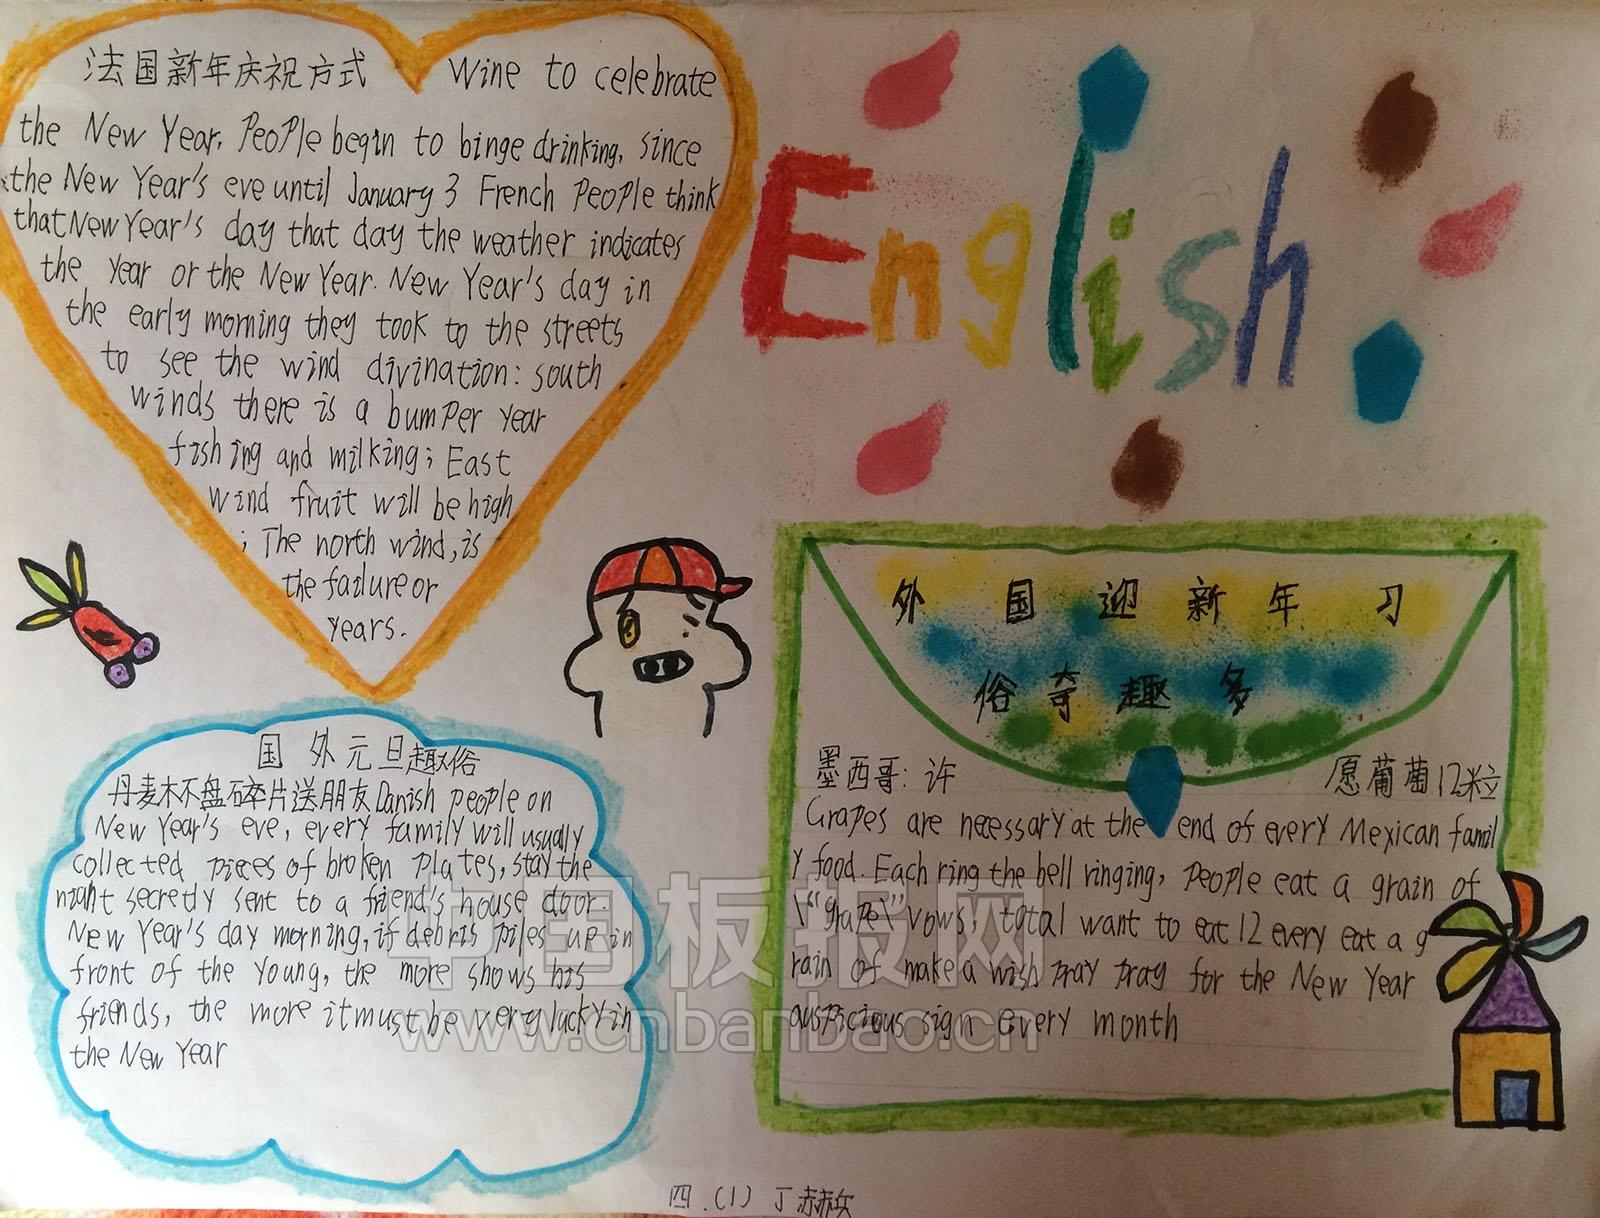 法国新年庆祝方式 Wine to celebrate
the New Year, People begin to binge drinking, since
the New Year's eve until January 3 French People think
that New Year's day that day the weather indicates
the year or the New Year. New Year's day in
the early morning they took to the streets
to see the wind divination: south
winds there is a bumper year
fishing and milking; East
wind fruit will be high
; The north wind, is
the failure or
years.
English
外国迎新年习
俗奇趣多
墨西哥: 许愿葡萄12粒
Grapes are necessary at the end of every Mexican famil
y food. Each ring the bell ringing, people eat a grain of
\"grape\" vows, total want to eat 12 every eat a g
rain of make a wish pray pray for the New Year
auspicious sign every month
国外元旦趣俗
丹麦杯盘碎片送朋友 Danish people on
New Year's eve, every family will usually
collected pieces of broken plates, stay the
night secretly sent to a friend's house door
New Year's day morning, if debris piles up in
front of the young, the more shows his
friends, the more it must be very lucky in
the New Year
中国板报网
www.cnbanbao.cn
四.(1) 丁赫兵